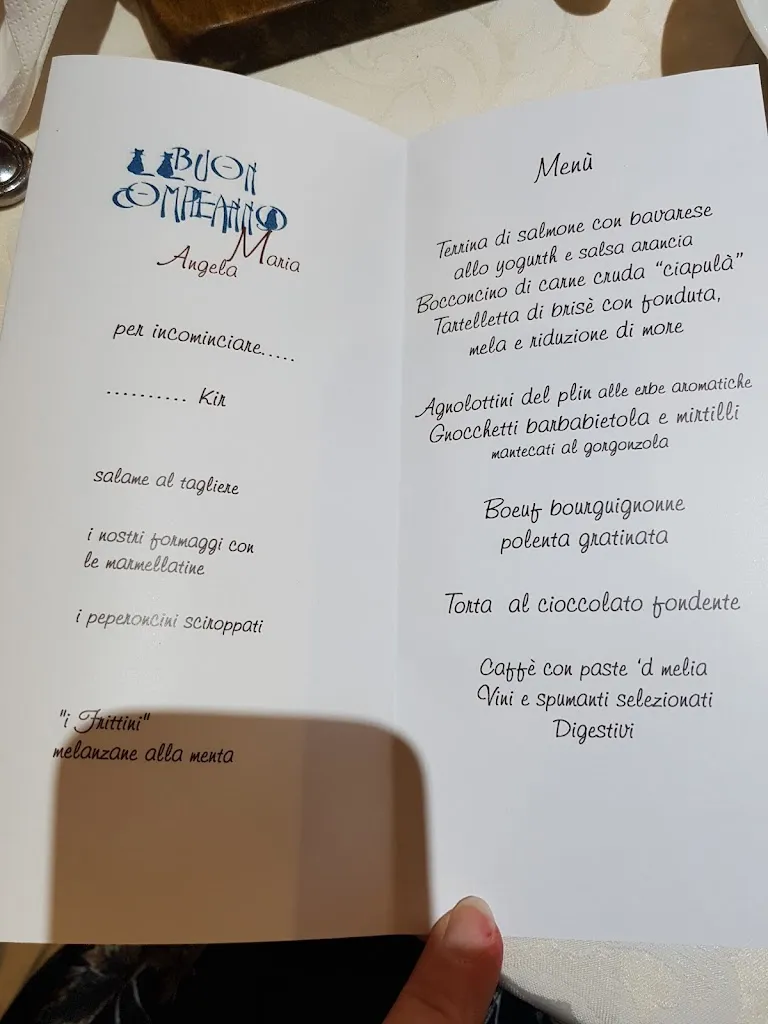 BUON
COMPEANNO
Angela Maria
per incominciare.....
.......... Kir
salame al tagliere
i nostri formaggi con
le marmellatine
i peperoncini sciroppati
"i Frittini"
melanzane alla menta
Menù
Terrina di salmone con bavarese
allo yogurth e salsa arancia
Bocconcino di carne cruda "ciapulà"
Tartelletta di brisè con fonduta,
mela e riduzione di more
Agnolottini del plin alle erbe aromatiche
Gnocchetti barbabietola e mirtilli
mantecati al gorgonzola
Boeuf bourguignonne
polenta gratinata
Torta al cioccolato fondente
Caffè con paste 'd melia
Vini e spumanti selezionati
Digestivi